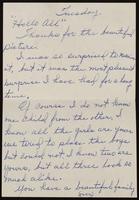 Tuesday.
"Hello All"
Thanks for the beautiful
picture!
I was so surprised to see
it, but it was the most pleasant
surprise I have had for a long
time.
Of course I do not know
one child from the other, I
know all the girls are yours,
we tried to place the boys
but could not. I know two are
yours, but all three look so
much alike.
You have a beautiful family,
over